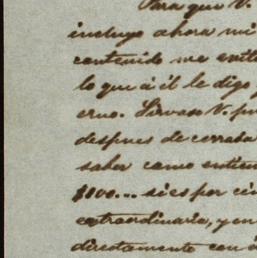 Para que V.
incluyo ahora mi
contenido me evita
lo que á él le digo y
erno. Sirvase V. pu
despues de cerrada
saber como entien
$100... si es por ci
extraordinaria, y en
directamente con